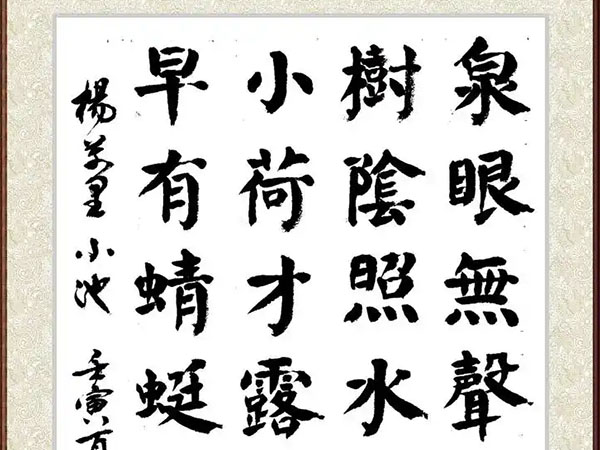 泉眼無聲
樹陰照水
小荷才露
早有蜻蜓
楊萬里小池 壬寅